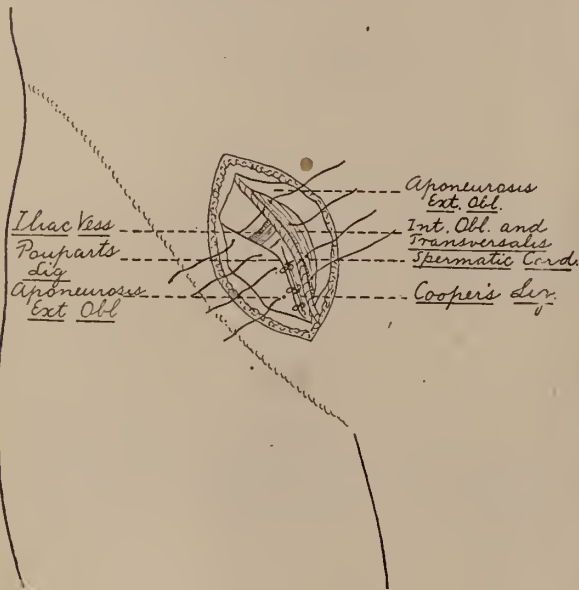 Iliac Vess
Pouparts
Lig
Aponeurosis
Ext Obl
Aponeurosis
Ext. Obl.
Int. Obl. and
Transversalis
Spermatic Cord.
Cooper's Lig.